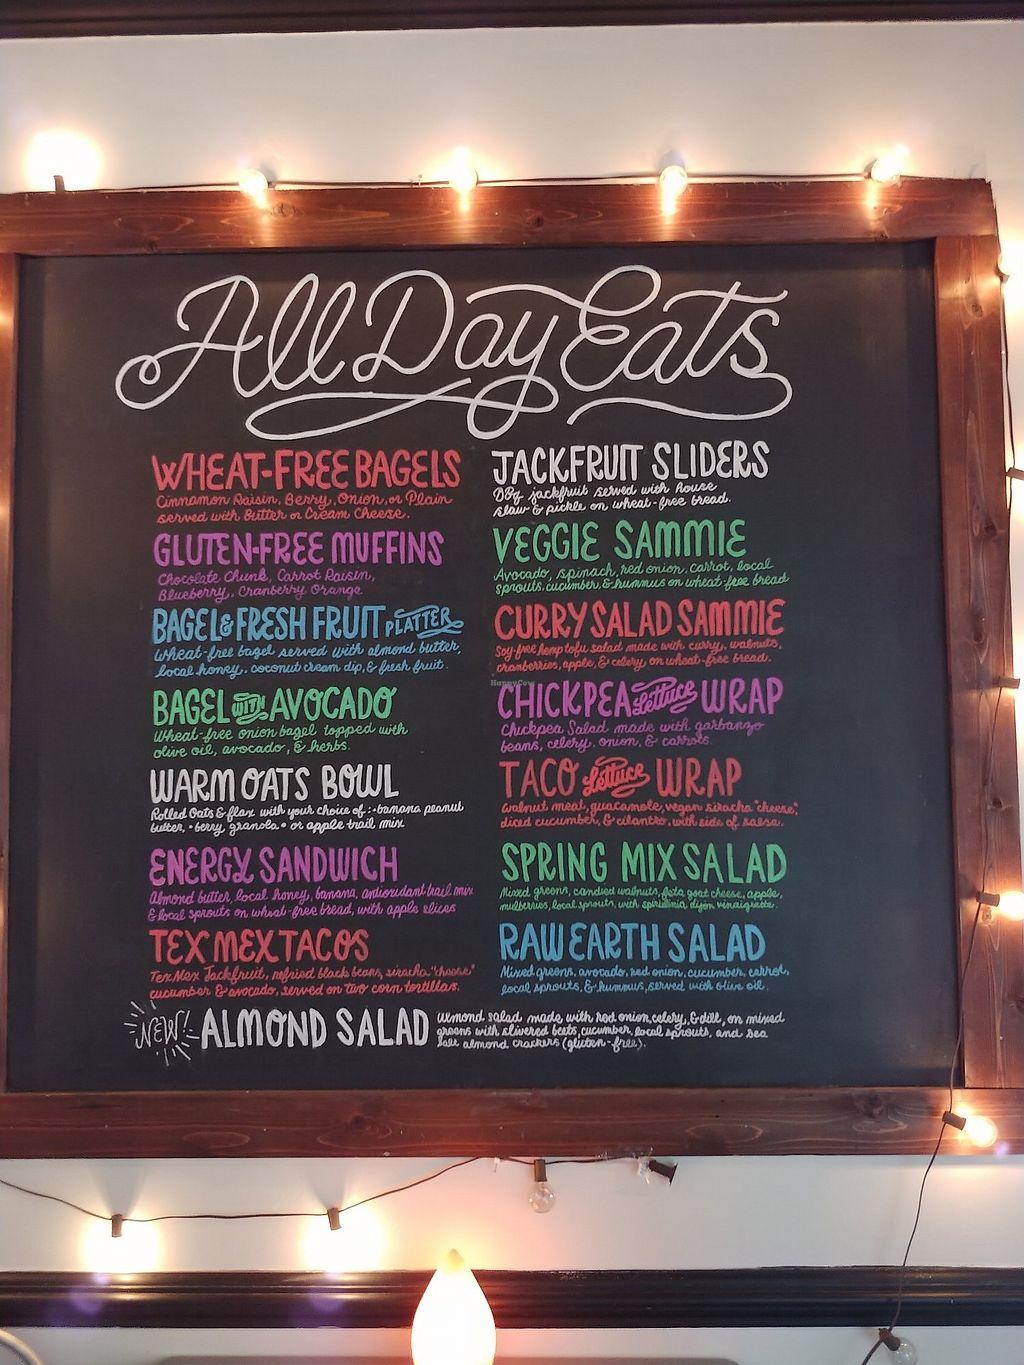 All Day Eats
WHEAT-FREE BAGELS
Cinnamon Raisin, Berry, Onion, or Plain
served with Butter or Cream Cheese.
GLUTEN-FREE MUFFINS
Chocolate Chunk, Carrot Raisin,
Blueberry, Cranberry Orange
BAGEL & FRESH FRUIT PLATTER
Wheat-free bagel served with almond butter,
local honey, coconut cream dip, & fresh fruit.
BAGEL WITH AVOCADO
Wheat-free onion bagel topped with
olive oil, avocado, & herbs.
WARM OATS BOWL
Rolled Oats & flax with your choice of: •banana peanut
butter, •berry granola • or apple trail mix
ENERGY SANDWICH
Almond butter, local honey, banana, antioxidant trail mix
& local sprouts on wheat-free bread, with apple slices
TEX MEX TACOS
Tex Mex Jackfruit, refried black beans, siracha "cheese"
cucumber & avocado, served on two corn tortillas.
JACKFRUIT SLIDERS
BBQ jackfruit served with house
slaw & pickle on wheat-free bread.
VEGGIE SAMMIE
Avocado, spinach, red onion, carrot, local
sprouts, cucumber, & hummus on wheat-free bread
CURRY SALAD SAMMIE
Soy-free hemp tofu salad made with curry, walnuts,
cranberries, apple, & celery on wheat-free bread.
HappyCow
CHICKPEA Lettuce WRAP
Chickpea Salad made with garbanzo
beans, celery, onion, & carrots.
TACO Lettuce WRAP
Walnut meat, guacamole, vegan siracha "cheese",
diced cucumber, & cilantro, with side of salsa.
SPRING MIX SALAD
Mixed greens, candied walnuts, feta goat cheese, apple,
mulberries, local sprouts, with spirulina dijon vinaigrette.
RAW EARTH SALAD
Mixed greens, avocado, red onion, cucumber, carrot,
local sprouts, & hummus, served with olive oil.
NEW! ALMOND SALAD
Almond salad made with red onion, celery, & dill, on mixed
greens with slivered beets, cucumber, local sprouts, and sea
salt almond crackers (gluten-free).